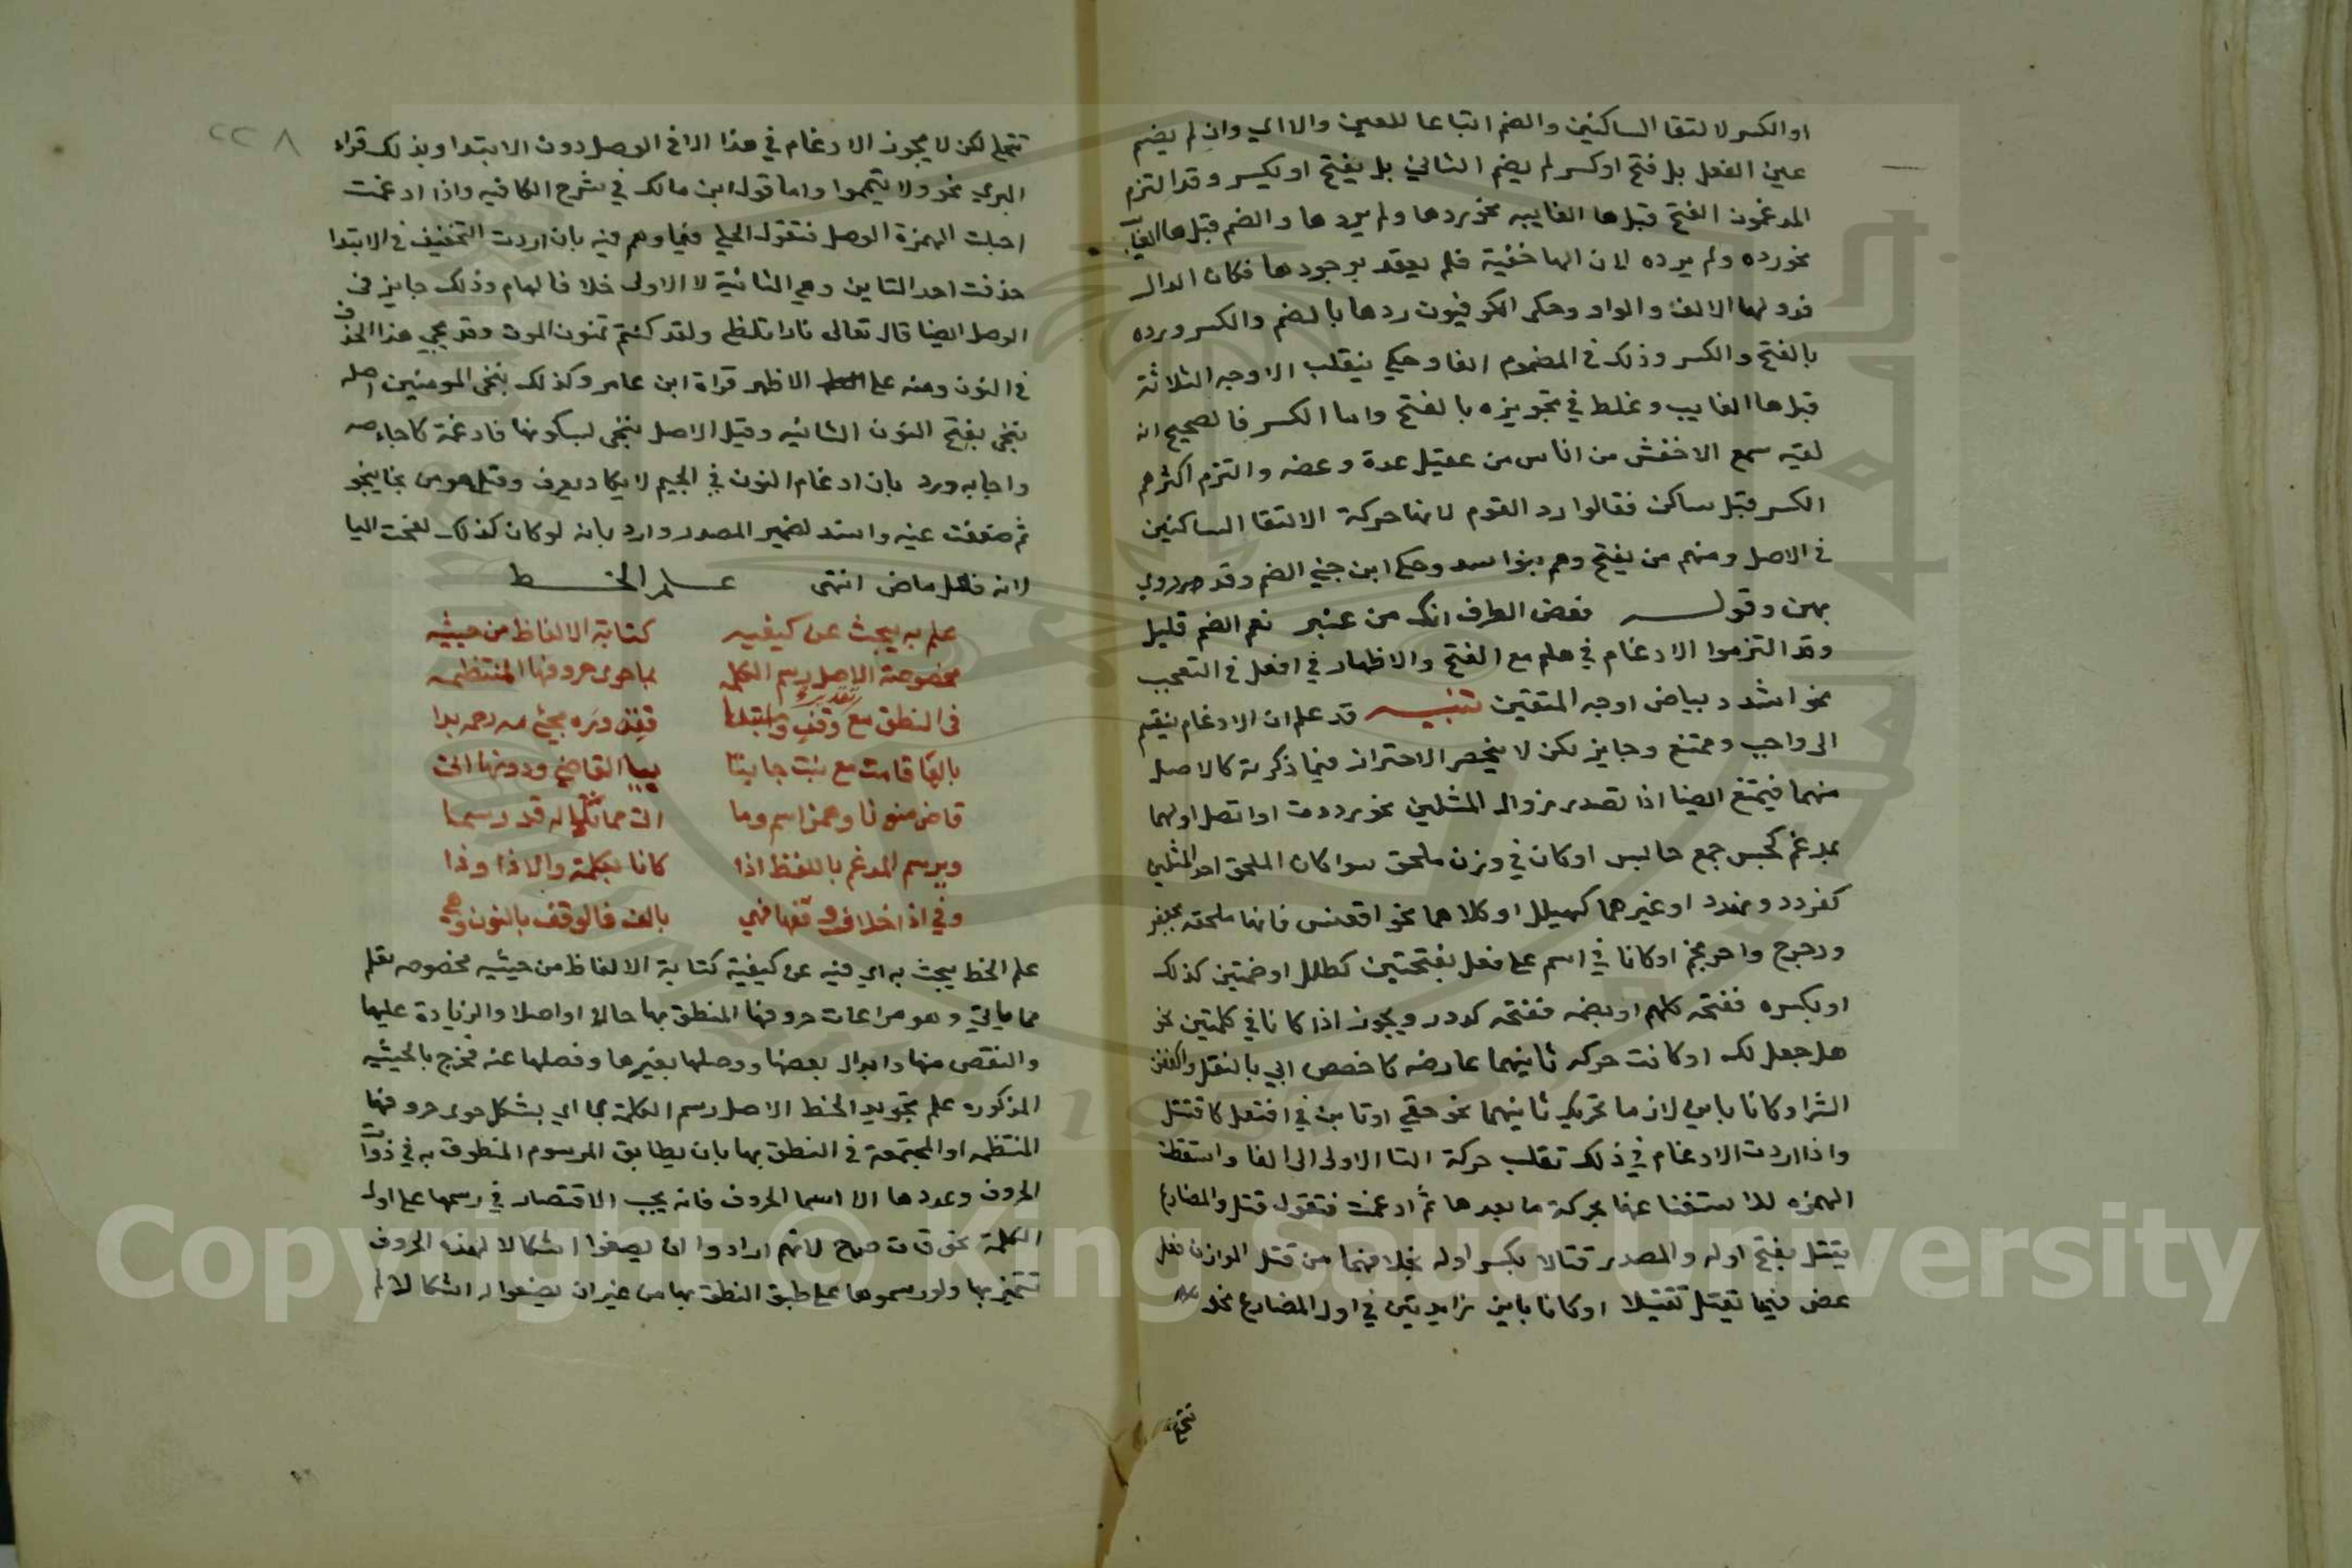 او الكسر لالتقا الساكنين والضم اتباعا للعين والا اي وان لم يضم
عين الفعل بل فتح او كسر لم يضم الثاني بل يفتح او يكسر وقد التزم
المدغمون الفتح قبل ها الغايبه نحو ردها ولم يردها والضم قبل ها الغايب
نحو رده ولم يرده لان الها خفية فلم يعتد بوجودها فكان الدال
قد وليها الالف والواو وحكى الكوفيون ردها بالضم والكسر ورده
بالفتح والكسر وذلك في المضموم الفا وحكي ثعلب الاوجه الثلاثة
قبل ها الغايب وغلط في تجويزه بالفتح واما الكسر فالصحيح انه
لغيه سمع الاخفش من اناس من عقيل عدة وعضه والتزم اكثرهم
الكسر قبل ساكن فقالوا رد القوم لانها حركة الالتقا الساكنين
في الاصل ومنهم من يفتح وهم بنو اسد وحكى ابن جني الضم وقد روي
بهن وقوله فغض الطرف انك من نعم الضم قليل
وقد التزموا الادغام في هلم مع الفتح والاظهار في افعل في التعجب
نحو اشدد ببياض اوجه المتقين تنبيه قد علم ان الادغام ينقسم
الى واجب وممتنع وجايز لكن لا ينحصر الاحتراز فيما ذكرته كالاصل
منهما فيمتنع ايضا اذا تصدر من وال المثلين نحو او اتصل اولهما
بمدغم كجسس جمع جاسس او كان في وزن ملحق سوا كان الملحق احد المثلين
كقردد ومهدد او غيرهما كهيلل او كلاهما نحو اقعنسس فانها ملحقه بجعفر
ودحرج واحرنجم او كانا في اسم على فعل بفتحتين كطلل او ضمتين كذلك
او بكسره ففتحه كلمم او بضمه ففتحه كدرر ويجوز اذا كانا في كلمتين نحو
هل جعل لك او كانت حركه ثانيهما عارضه كاخصص ابي بالنقل واكفف
الشر او كانا يايين لازما تحريك ثانيهما نحو حيي او تا ين في افتعل كاقتتل
واذا اردت الادغام في ذلك نقلت حركة التا الاولى الى الفا واسقطت
الهمزه للاستغنا عنها بحركة ما بعدها ثم ادغمت فتقول قتل والمضارع
يقتل بفتح اوله والمصدر قتالا بكسر اوله بخلافهما من قتل الموازن فعل
عض فيهما يقتل تقتيلا او كانا تاين زايدتين في اول المضارع نحو
تتجلى لكن لا يجوز الادغام في هذا الا في الوصل دون الابتدا وبذلك قراء
البزي نحو ولا تيمموا واما قول ابن مالك في شرح الكافيه واذا ادغمت
اجتلبت الهمزة الوصل فتقول اتجلى فيما وهم فيه بان اردت التخفيف في الابتدا
حذفت احد التاين وهي الثانية لا الاولى خلافا لهام وذلك جايز في
الوصل ايضا قال تعالى نارا تلظى ولقد كنتم تمنون الموت وقد يجي هذا الحذف
في النون ومنه على الاظهر قراة ابن عامر وكذلك ننجي المومنين اصله
ننجي بفتح النون الثانيه وقيل الاصل ننجي بسكونها فادغمة كاجاصه
واجانه ورد بان ادغام النون في الجيم لا يكاد يعرف وقيل هو من نجا ينجو
ثم ضعفت عينه واسند لضمير المصدر وارد بانه لو كان كذلك لفتحت اليا
لانه فعل ماض انتهى علم الخط
علم به يبحث عن كيفيه كتابة الالفاظ من حيثيه
مخصوصة الاصل رسم الكلمه بما حوى حروفها المنتظمه
في النطق مع تقدير وقف وابتدا
بالها قامت مع بنت جا بتا بيا القاضي ودونها
قاض منونا وهمز اسم وما قد رسما
ويرسم المدغم باللفظ اذا كانا بكلمة والا ذا وذا
وفي اذا خلاف وقفها فهي بالف فالوقف بالنون وهي
علم الخط يبحث به اي فيه عن كيفية كتابة الالفاظ من حيثيه مخصوصه تعلم
مما ياتي وهو مراعات حروفها المنطق بها حالا او اصلا والزيادة عليها
والنقص منها وابدال بعضها ووصلها بغيرها وفصلها عنه فخرج بالحيثيه
المذكوره علم تجويد الخط الاصل رسم الكلمة بما اي بشكل حوى حروفها
المنتظمه او المجتمعة في النطق بها بان يطابق المرسوم المنطوق به في ذوات
الحروف وعددها الا اسما الحروف فانه يجب الاقتصار في رسمها على اول
الكلمة نحو ق ن ص ج لانهم ارادوا ان يضعوا اشكالا لهذه الحروف
تتميز بها ولو رسموها على طبق النطق بها من غير ان يضعوا له اشكالا لم
٢٢٨
Copyright © King Saud University
1957